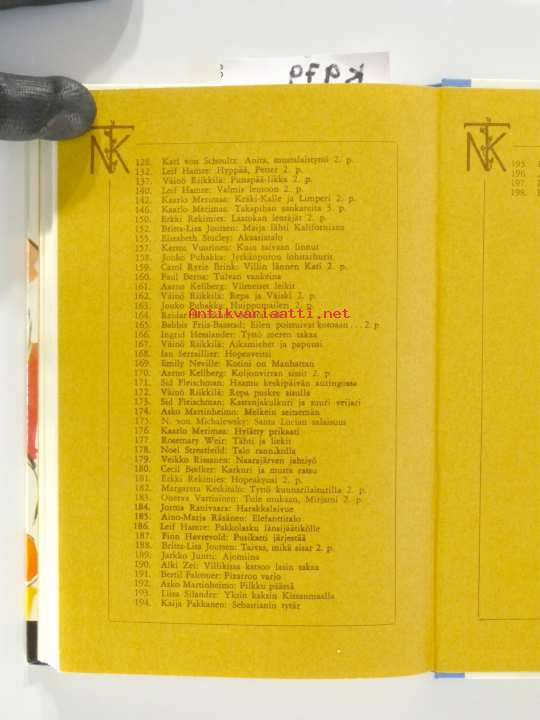 128. Karl von Schoultz: Anita, mustalaistyttö 2. p.
132. Leif Hamre: Hyppää, Petter 2. p.
137. Väinö Riikkilä: Punapää-Iikka 2. p.
140. Leif Hamre: Valmis lentoon 2. p.
142. Kaarlo Merimaa: Kräki-Kalle ja Limperi 2. p.
146. Kaarlo Merimaa: Takapihan sankareita 3. p.
150. Erkki Rekimies: Laatokan lentäjät 2. p.
152. Britta-Lisa Joutsen: Maija lähti Kaliforniaan
155. Elizabeth Stucley: Akaasiatalo
157. Kerttu Vuorinen: Kuin taivaan linnut
158. Jouko Puhakka: Jytkänpuron lohitarhurit
159. Carol Ryrie Brink: Villin lännen Kati 2. p.
160. Paul Berna: Tulvan vankeina
161. Aarno Kellberg: Viimeiset leikit
162. Väinö Riikkilä: Repa ja Väiski 2. p.
163. Jouko Puhakka: Huippuspaileri 2. p.
164. Reidar
165. Babbis Friis-Baastad: Eilen poistuivat kotoaan . . . 2 p
166. Ingrid Hesslander: Tyttö meren takaa
167. Väinö Riikkilä: Aikamiehet ja papussi
168. Ian Serraillier: Hopeaveitsi
169. Emily Neville: Kotini on Manhattan
170. Aarno Kellberg: Koljonvirran sissit 2. p.
171. Sid Fleischman: Haamu keskipäivän auringossa
172. Väinö Riikkilä: Repa puskee sisulla
173. Sid Fleischman: Kastanjakulkuri ja suuri veijari
174. Asko Martinheimo: Melkein seitsemän
175. N. von Michalewsky: Santa Lucian salaisuus
176. Kaarlo Merimaa: Hylätty prikaati
177. Rosemary Weir: Tähti ja liekit
178. Noel Streatfeild: Talo rannikolla
179. Veikko Rissanen: Naarajärven jahtiyö
180. Cecil Bødker: Karkuri ja musta ratsu
181. Erkki Rekimies: Hopeakyysi 2. p.
182. Margareta Keskitalo: Tyttö kunnarilaiturilla 2. p.
183. Onerva Vartiainen: Tule mukaan, Mirjami 2. p.
184. Jorma Ranivaara: Harakkalaivue
185. Aino-Marja Räsänen: Elefanttitalo
186. Leif Hamre: Pakkolasku länsijäätikölle
187. Finn Havrevold: Pusikatti järjestää
188. Britta-Lisa Joutsen: Taivas, mikä sisar 2. p.
189. Jarkko Juntti: Ajomiina
190. Alki Zei: Villikissa katsoo lasin takaa
191. Bertil Falconer: Pizarron varjo
192. Asko Martinheimo: Pilkku päässä
193. Liisa Silander: Yksin kaksin Kissanmaalla
194. Kaija Pakkanen: Sebastianin tytär
195.
196.
197.
198.
Antikvariaatti.net